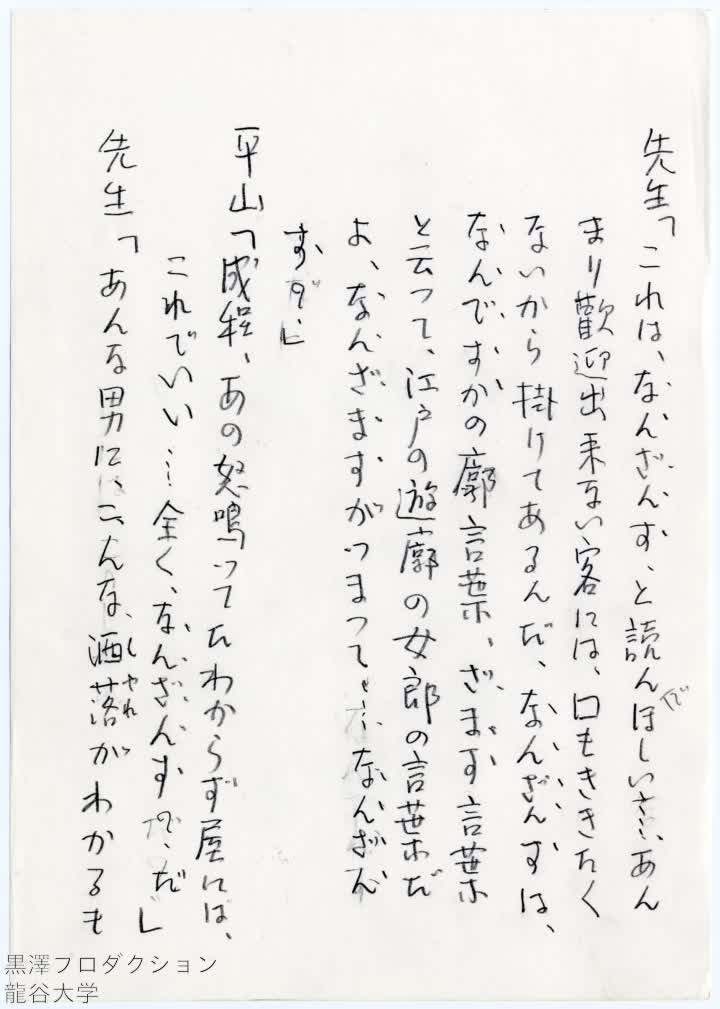 先生「これは、なんざんす、と読んでほしい……あん
まり歓迎出来ない客には、口もききたく
ないから掛けてあるんだ、なんざんすは、
なんですかの廓言葉、ざます言葉
と云って、江戸の遊廓の女郎の言葉だ
よ、なんざますがつまって……なんざん
す？」
平山「成程、あの怒鳴ってたわからず屋には、
これでいい……全く、なんざんす？だ」
先生「あんな男に、こんな、洒落がわかるも
しゃれ
黒澤プロダクション
龍谷大学